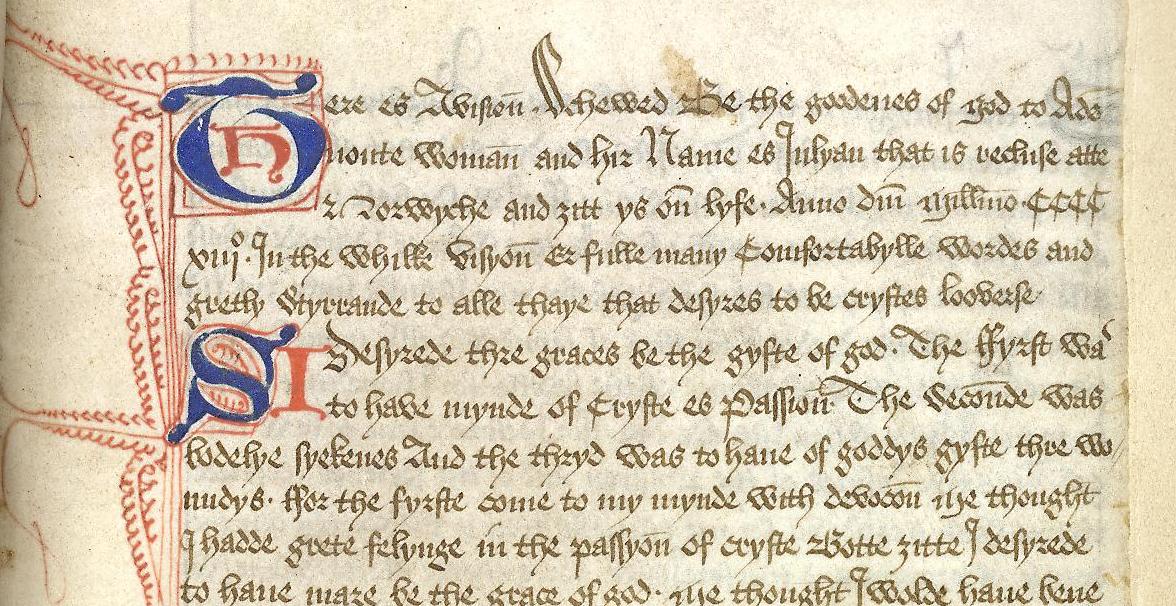 Here es Avisioñ Schewed Be the goodenes of god to Ade
uoute womañ and hir Name es Julyan that is recluse atte
Norwyche and ȝitt ys oñ lyfe. Anno dm̄ mill̄mo CCCC
xiijͦ. In the whilke visyoñ Er fulle many Comfortabylle wordes and
gretly Styrrande to alle thaye that desyres to be crystes looverse
I Desyrede thre graces be the gyfte of god. The ffyrst wa
to have mynde of Cryste es Passioñ. The Secoñde was
bodelye syekenes And the thryd was to haue of goddys gyfte thre wo
undys. ffor the fyrste come to my mynde with devocoñ me thought
I hadde grete felynge in the passyoñ of cryste Botte ȝitte I desyrede
to haue mare be the grace of god. me thought I wolde haue bene